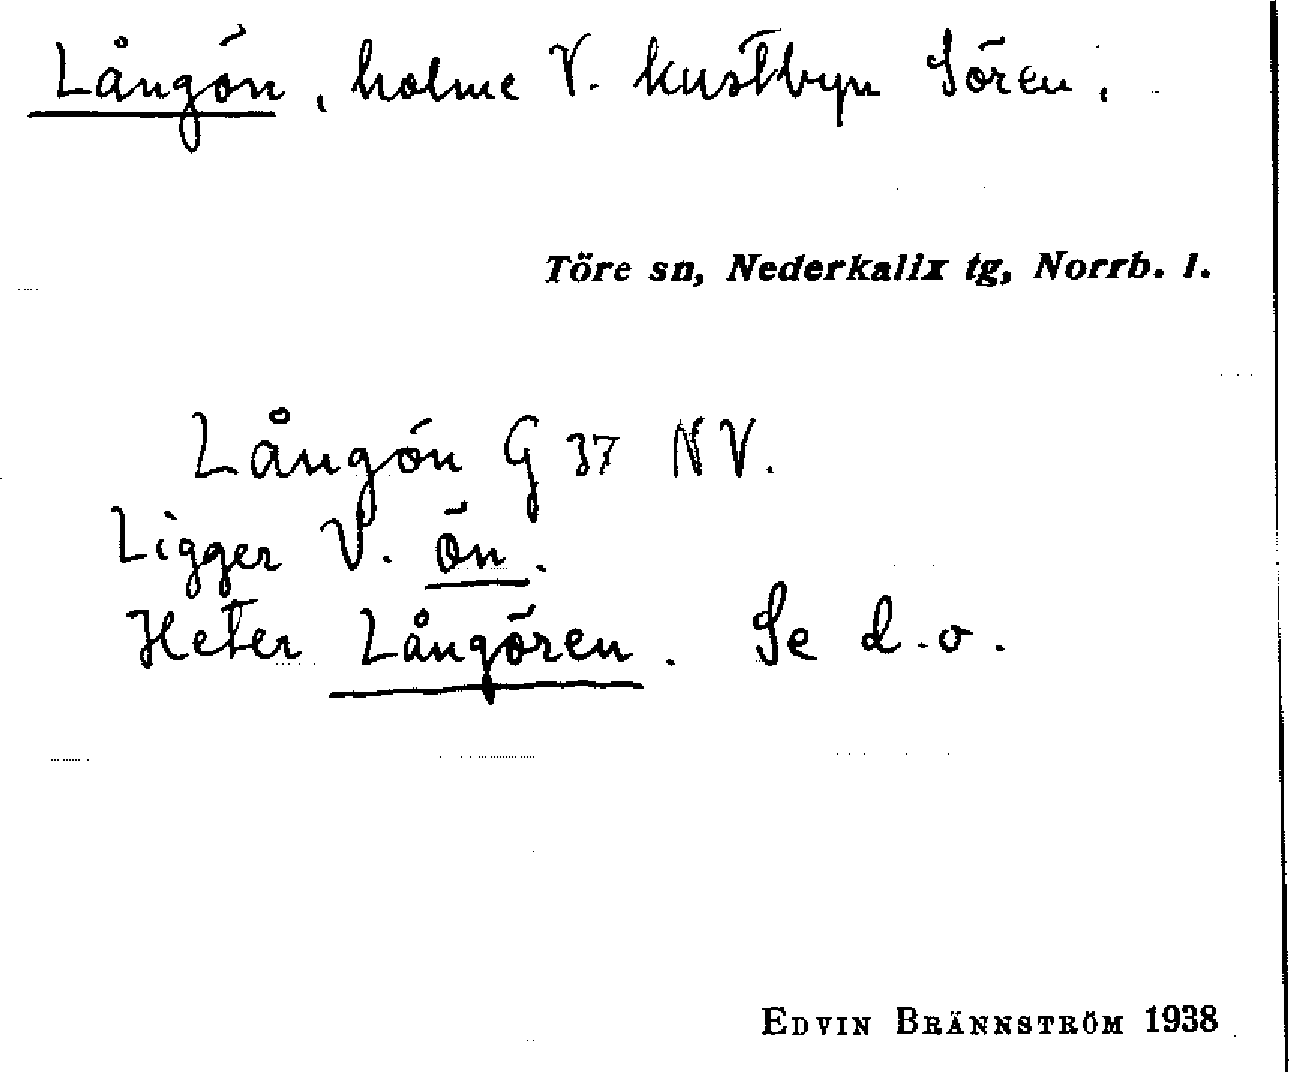 Långön, holme V. kustbyn Sören.
Töre sn, Nederkalix tg, Norrb. l.
Långön G 37 NV.
Ligger V. Ön.
Heter Långören. Se d.o.
EDVIN BRÄNNSTRÖM 1938